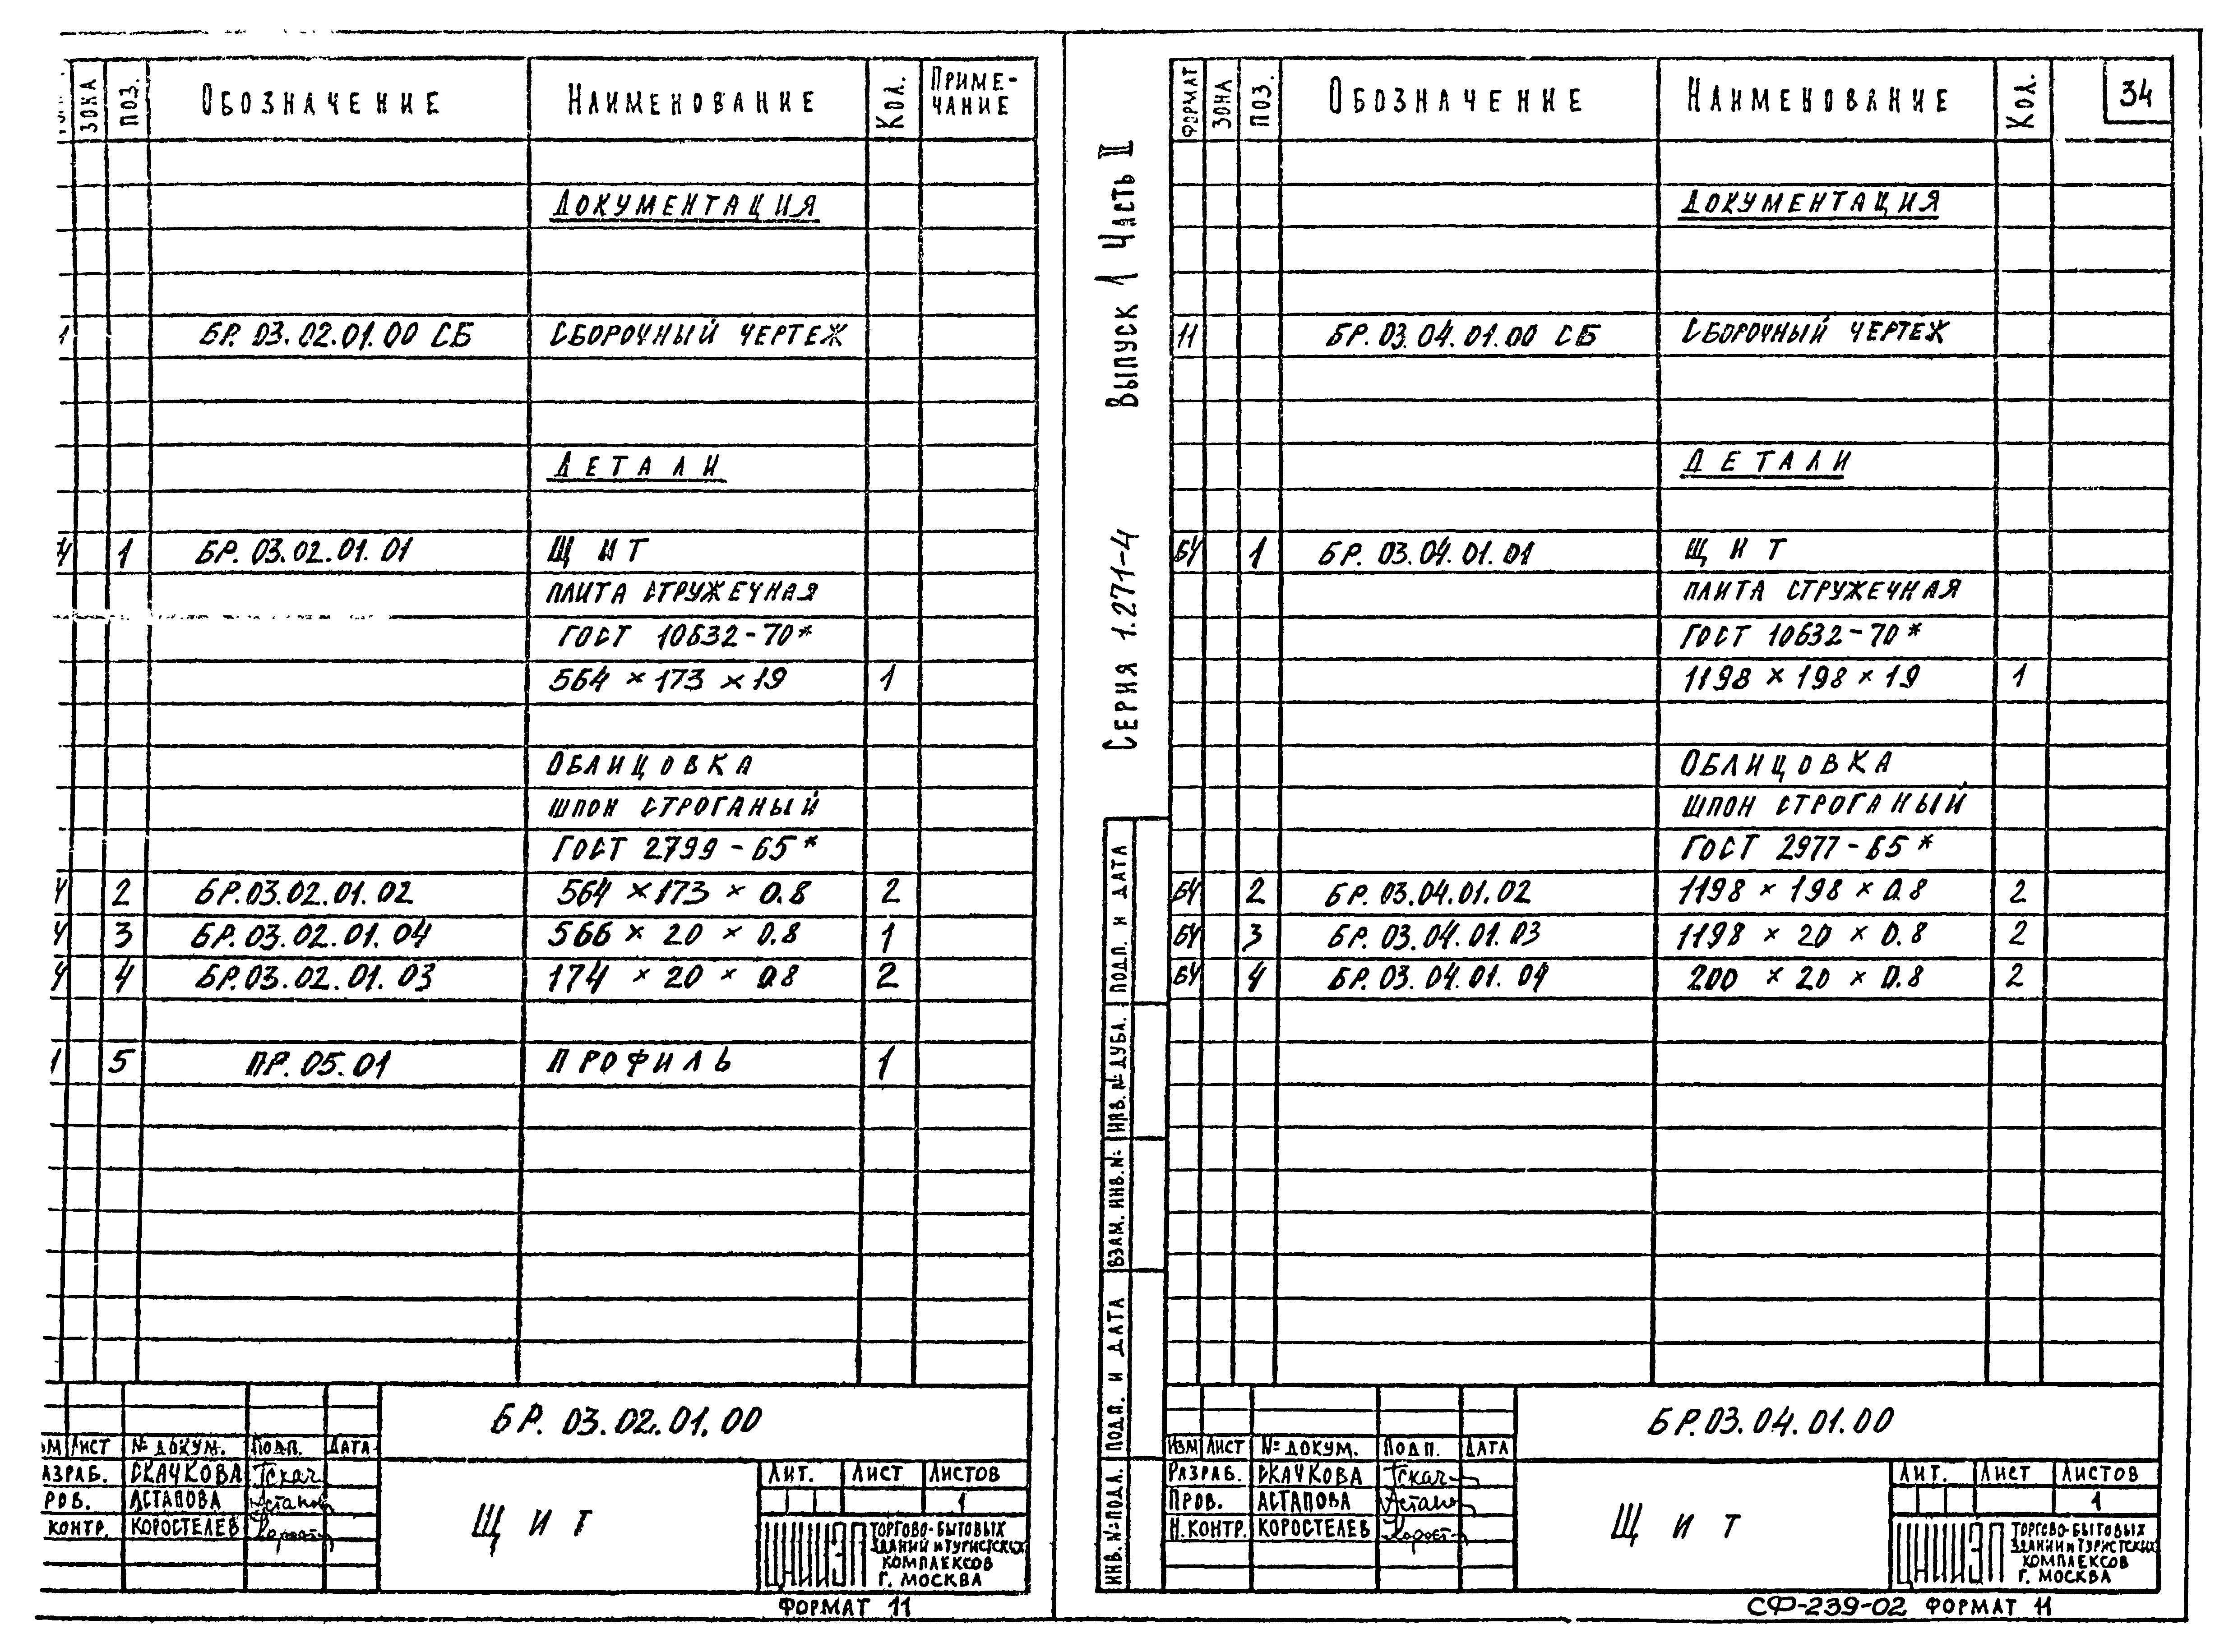 ЗОНА ПОЗ. ОБОЗНАЧЕНИЕ НАИМЕНОВАНИЕ КОЛ. ПРИМЕ-
ЧАНИЕ
ДОКУМЕНТАЦИЯ
1 БР. 03.02.01.00 СБ СБОРОЧНЫЙ ЧЕРТЕЖ
ДЕТАЛИ
Ч 1 БР. 03.02.01.01 ЩИТ
ПЛИТА СТРУЖЕЧНАЯ
ГОСТ 10632-70*
564 × 173 × 19 1
ОБЛИЦОВКА
ШПОН СТРОГАНЫЙ
ГОСТ 2799-65*
Ч 2 БР.03.02.01.02 564 × 173 × 0.8 2
Ч 3 БР.03.02.01.04 566 × 20 × 0.8 1
Ч 4 БР.03.02.01.03 174 × 20 × 0.8 2
1 5 ПР.05.01 ПРОФИЛЬ 1
БР. 03.02.01.00
ЗМ ЛИСТ № ДОКУМ. ПОДП. ДАТА
АЗРАБ. СКАЧКОВА Гскач
РОВ. АСТАПОВА Астапов
КОНТР. КОРОСТЕЛЕВ Корост
ЩИТ
ЛИТ. ЛИСТ ЛИСТОВ
1
ЦНИИЭП ТОРГОВО-БЫТОВЫХ
ЗДАНИЙ И ТУРИСТСКИХ
КОМПЛЕКСОВ
Г. МОСКВА
ФОРМАТ 11
СЕРИЯ 1.271-4 ВЫПУСК 1 ЧАСТЬ II
ФОРМАТ ЗОНА ПОЗ. ОБОЗНАЧЕНИЕ НАИМЕНОВАНИЕ КОЛ. 34
ДОКУМЕНТАЦИЯ
11 БР. 03.04.01.00 СБ СБОРОЧНЫЙ ЧЕРТЕЖ
ДЕТАЛИ
БЧ 1 БР. 03.04.01.01 ЩИТ
ПЛИТА СТРУЖЕЧНАЯ
ГОСТ 10632-70*
1198 × 198 × 19 1
ОБЛИЦОВКА
ШПОН СТРОГАНЫЙ
ГОСТ 2977-65*
БЧ 2 БР. 03.04.01.02 1198 × 198 × 0.8 2
БЧ 3 БР. 03.04.01.03 1198 × 20 × 0.8 2
БЧ 4 БР. 03.04.01.04 200 × 20 × 0.8 2
ИНВ. № ПОДЛ. ПОДП. И ДАТА ВЗАМ. ИНВ. № ИНВ. № ДУБЛ. ПОДП. И ДАТА
БР.03.04.01.00
ИЗМ ЛИСТ № ДОКУМ. ПОДП. ДАТА
РАЗРАБ. СКАЧКОВА Гскач
ПРОВ. АСТАПОВА Астапов
Н.КОНТР. КОРОСТЕЛЕВ Корост
ЩИТ
ЛИТ. ЛИСТ ЛИСТОВ
1
ЦНИИЭП ТОРГОВО-БЫТОВЫХ
ЗДАНИЙ И ТУРИСТСКИХ
КОМПЛЕКСОВ
Г. МОСКВА
СФ-239-02 ФОРМАТ 11